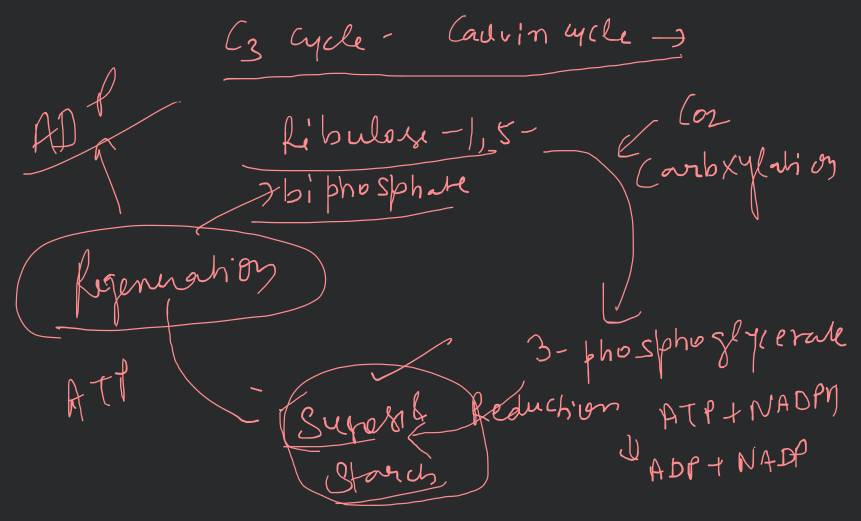 C3 cycle - Calvin cycle →
ADP
Ribulose-1,5-
biphosphate
CO2
Carboxylation
Regeneration
3-phosphoglycerate
ATP
Sugars &
Starch
Reduction
ATP + NADPH
↓ ADP + NADP